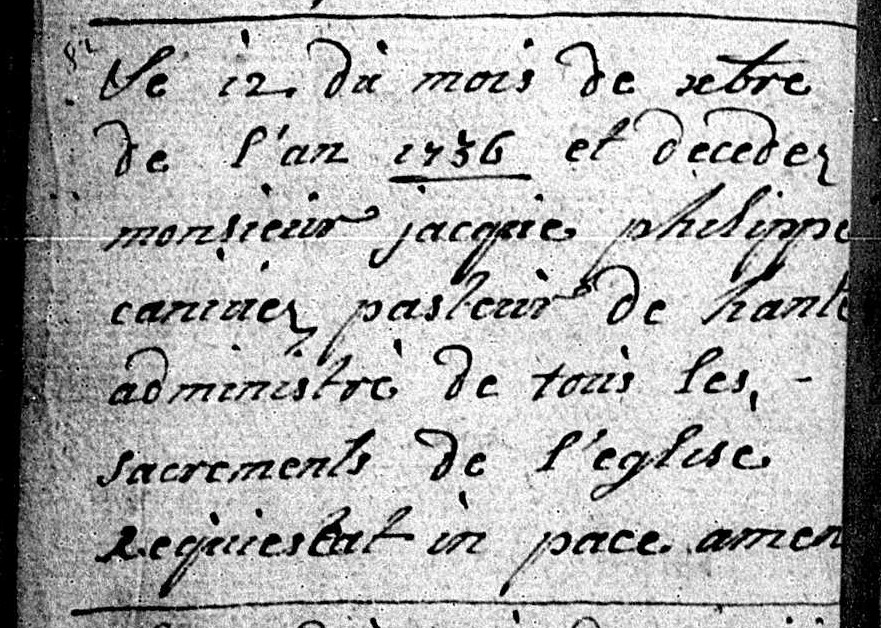 Le 12 du mois de xbre
de l'an 1736 et decedez
monsieur jacque philippe
caniuez pasteur de hante
administré de tous les -
sacrements de l'eglise
Requiescat in pace amen